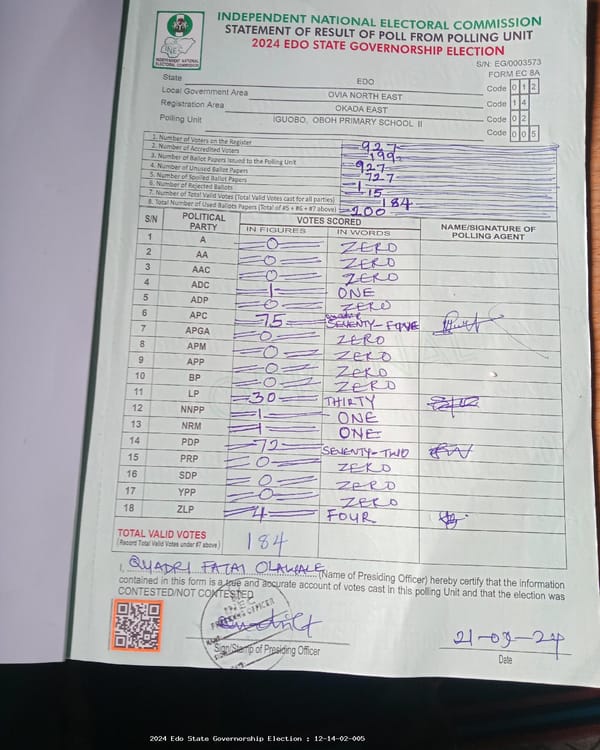 INDEPENDENT NATIONAL ELECTORAL COMMISSION
STATEMENT OF RESULT OF POLL FROM POLLING UNIT
2024 EDO STATE GOVERNORSHIP ELECTION
INEC
INDEPENDENT NATIONAL ELECTORAL COMMISSION
S/N: EG/0003573
FORM EC 8A
State EDO Code 0 1 2
Local Government Area OVIA NORTH EAST Code 1 4
Registration Area OKADA EAST Code 0 2
Polling Unit IGUOBO, OBOH PRIMARY SCHOOL II Code 0 0 5
1. Number of Voters on the Register 927
2. Number of Accredited Voters 199
3. Number of Ballot Papers Issued to the Polling Unit 927
4. Number of Unused Ballot Papers 727
5. Number of Spoiled Ballot Papers 1
6. Number of Rejected Ballots 15
7. Number of Total Valid Votes (Total Valid Votes cast for all parties) 184
8. Total Number of Used Ballots Papers (Total of #5 + #6 + #7 above) 200
S/N POLITICAL PARTY VOTES SCORED NAME/SIGNATURE OF POLLING AGENT
IN FIGURES IN WORDS
1 A 0 ZERO
2 AA 0 ZERO
3 AAC 0 ZERO
4 ADC 1 ONE
5 ADP 0 ZERO
6 APC 75 SEVENTY-FIVE
7 APGA 0 ZERO
8 APM 0 ZERO
9 APP 0 ZERO
10 BP 0 ZERO
11 LP 30 THIRTY
12 NNPP 1 ONE
13 NRM 1 ONE
14 PDP 72 SEVENTY-TWO
15 PRP 0 ZERO
16 SDP 0 ZERO
17 YPP 0 ZERO
18 ZLP 4 FOUR
TOTAL VALID VOTES 184
(Record Total Valid Votes under #7 above)
I, QUADRI FATAI OLAWALE (Name of Presiding Officer) hereby certify that the information
contained in this form is a true and accurate account of votes cast in this polling Unit and that the election was
CONTESTED/NOT CONTESTED
PRESIDING OFFICER
Sign/Stamp of Presiding Officer
21-09-24
Date
2024 Edo State Governorship Election : 12-14-02-005